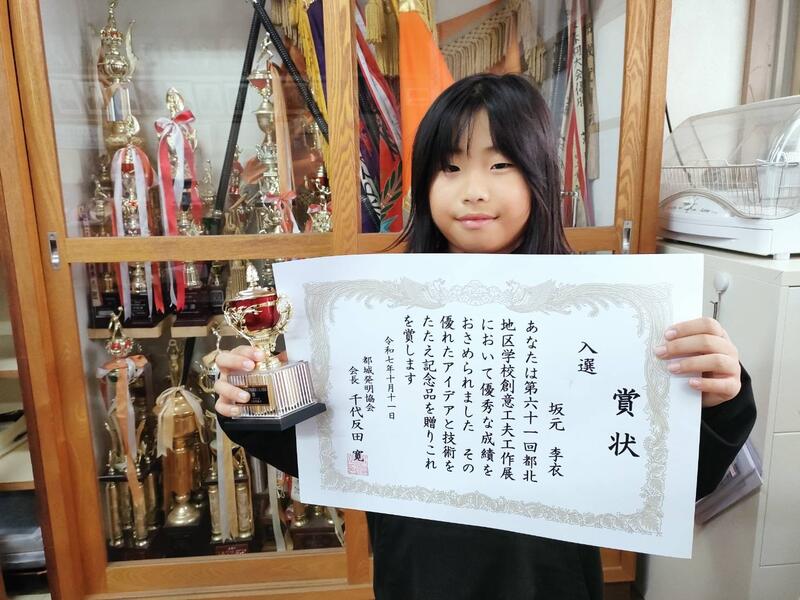 賞状
入選
坂元 李衣
あなたは第六十一回都北
地区学校創意工夫工作展
において優秀な成績を
おさめられました その
優れたアイデアと技術を
たたえ記念品を贈りこれ
を賞します
令和七年十月十一日
都城発明協会
会長 千代反田 寛